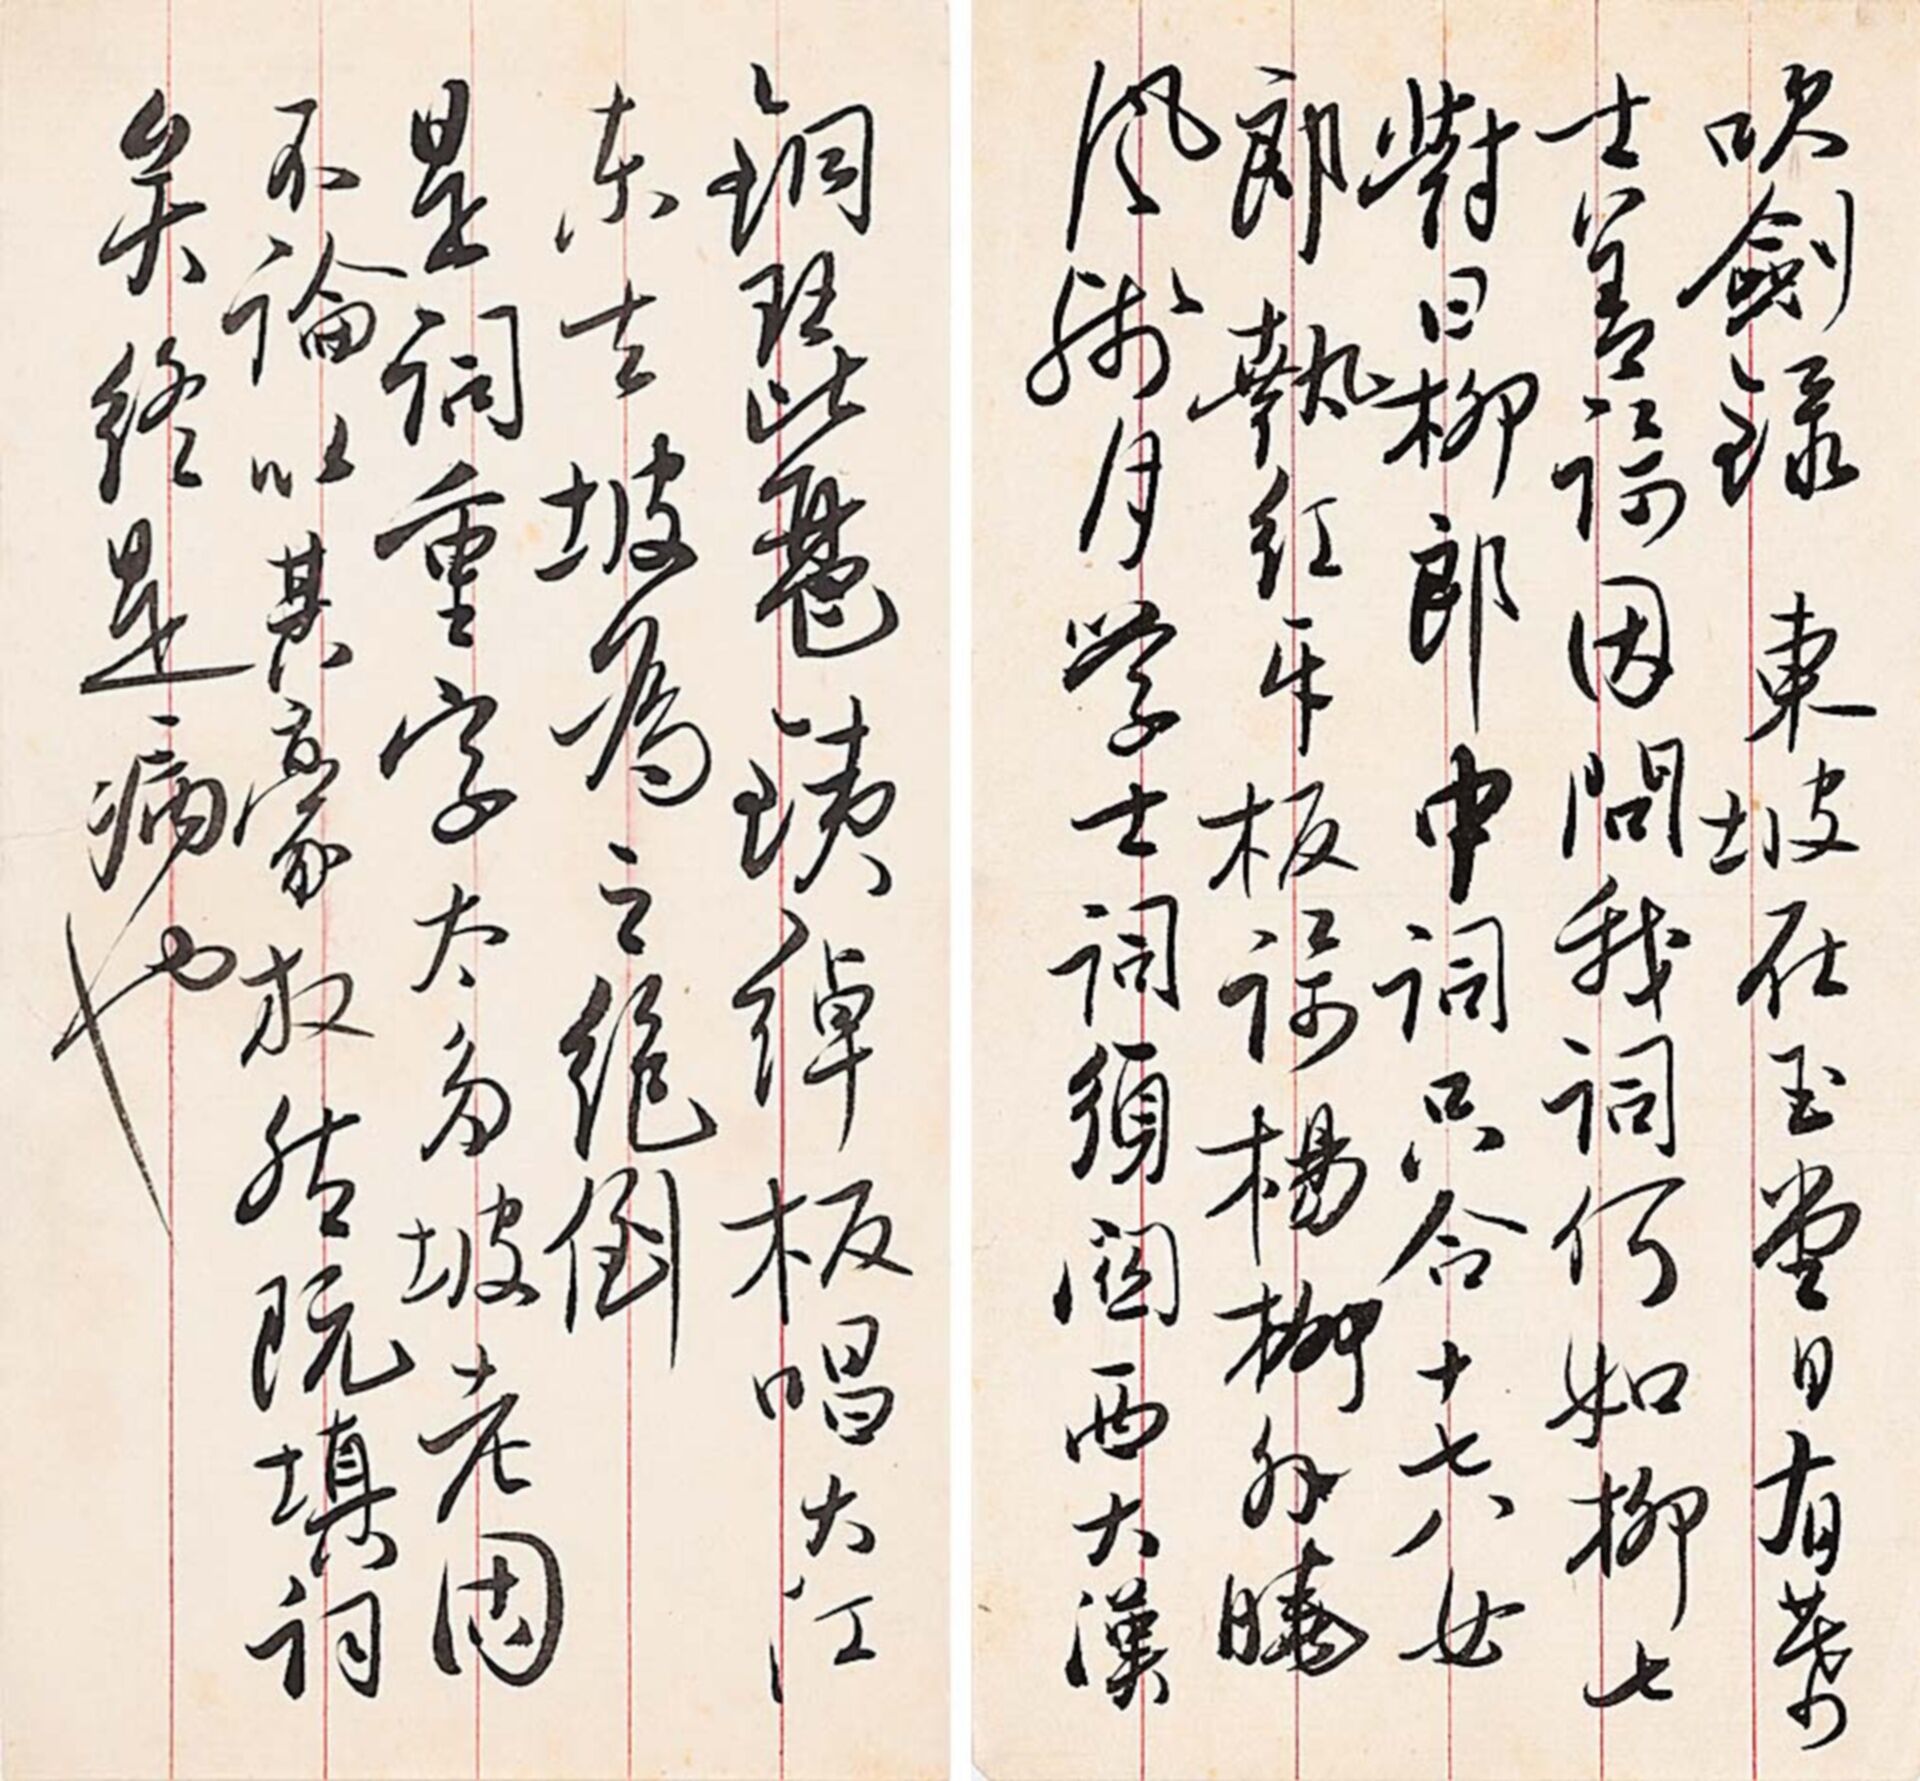 吹劍録 東坡在玉堂日有幕
士善謌因問我詞何如柳七
對曰柳郎中詞只合十七八女
郎執紅牙板謌楊柳外曉
風殘月学士詞須関西大漢
銅琵琶鐵綽板唱大江
东去坡為之絶倒
是詞重字太多坡老固
不論以其豪放然既填詞
矣終是病也